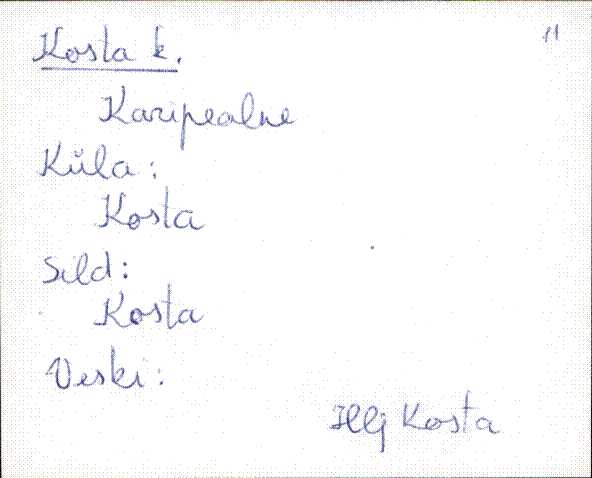 Kosta k. 11
Karipealne
Küla:
Kosta
Sild:
Kosta
Veski:
Hlj Kosta